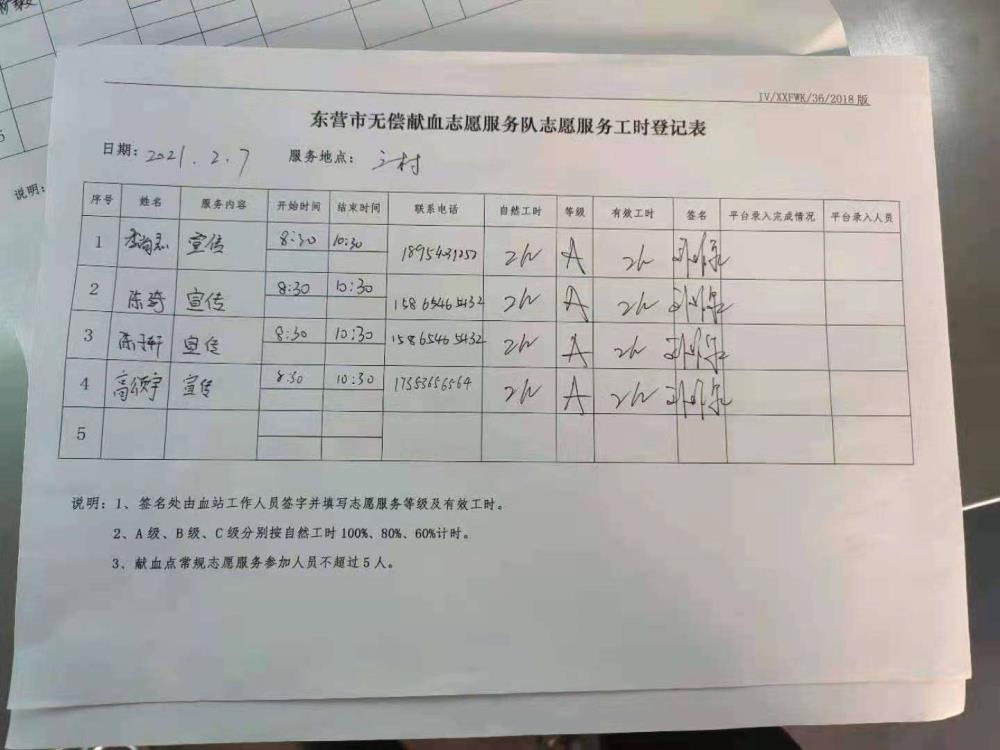 IV/XXFWK/36/2018版
东营市无偿献血志愿服务队志愿服务工时登记表
日期：2021.2.7 服务地点：
序号 姓名 服务内容 开始时间 结束时间 联系电话 自然工时 等级 有效工时 签名 平台录入完成情况 平台录入人员
1 宣传 8:30 10:30 2h A 2h
2 陈琦 宣传 8:30 10:30 15865465432 2h A 2h
3 宣传 8:30 10:30 15865465432 2h A 2h
4 高颂宇 宣传 8:30 10:30 17353656564 2h A 2h
5
说明：1、签名处由血站工作人员签字并填写志愿服务等级及有效工时。
2、A级、B级、C级分别按自然工时100%、80%、60%计时。
3、献血点常规志愿服务参加人员不超过5人。
说明：